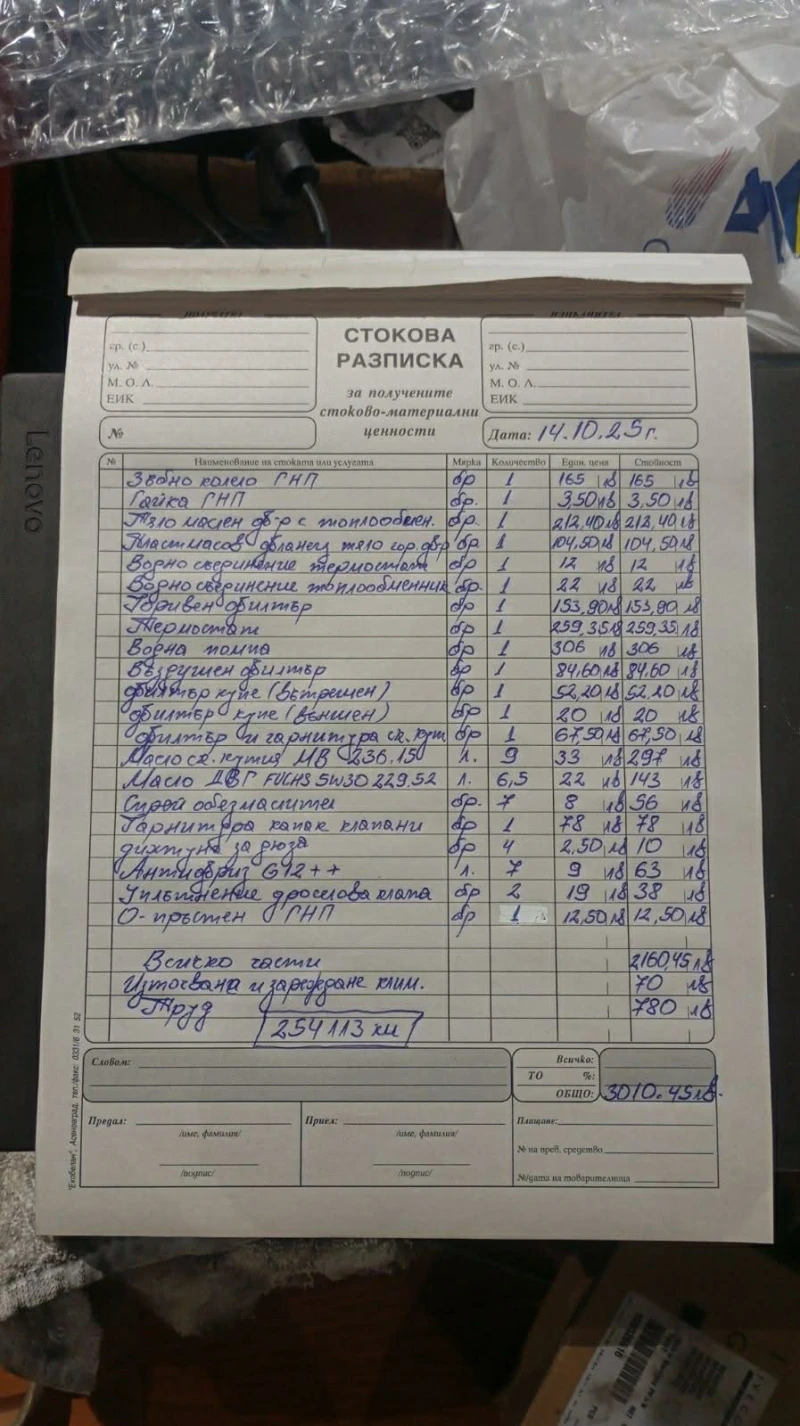 Lenovo
СТОКОВА
РАЗПИСКА
за получените
стоково-материални
ценности
гр. (с.)
ул. №
М. О. Л.
ЕИК
№
гр. (с.)
ул. №
М. О. Л.
ЕИК
Дата: 14.10.25г.
№ Наименование на стоката или услугата Мярка Количество Един. цена Стойност
Зъбно колело ГНП бр 1 165 лв 165 лв
Гайка ГНП бр. 1 3,50лв 3,50 лв
Тяло маслен ф-р с топлообмен. бр. 1 212,40лв 212,40лв
Пластмасов фланец тяло гор. ф-р бр 1 104,50лв 104,50лв
Водно съединение термостат бр 1 12 лв 12 лв
Водно съединение топлообменник бр. 1 22 лв 22 лв
Горивен филтър бр 1 153,90лв 153,90 лв
Термостат бр 1 259,35лв 259,35лв
Водна помпа бр 1 306 лв 306 лв
Въздушен филтър бр 1 84,60лв 84,60 лв
Филтър купе (вътрешен) бр 1 52,20лв 52,20 лв
Филтър купе (външен) бр 1 20 лв 20 лв
Филтър и гарнитура ск. кут бр 1 67,50лв 67,50 лв
Масло ск. кутия MB 236.15 л. 9 33 лв 297 лв
Масло ДВГ FUCHS 5W30 229.52 л. 6,5 22 лв 143 лв
Спрей обезмаслител бр. 7 8 лв 56 лв
Гарнитура капак клапани бр 1 78 лв 78 лв
Дихтунг за дюза бр 4 2,50лв 10 лв
Антифриз G12++ л. 7 9 лв 63 лв
Уплътнение дроселова клапа бр 2 19 лв 38 лв
О-пръстен ГНП бр 1 12,50лв 12,50лв
Всичко части 2160,45лв
Източване и зареждане клим. 70 лв
Труд 780 лв
254113 км
Словом:
Всичко:
ТО %:
ОБЩО: 3010.45лв.
Предал:
/име, фамилия/
/подпис/
Приел:
/име, фамилия/
/подпис/
Плащане:
№ на прев. средство
№/дата на товарителница
"Екобелан", Асеновград, тел./факс: 0331/6 31 52